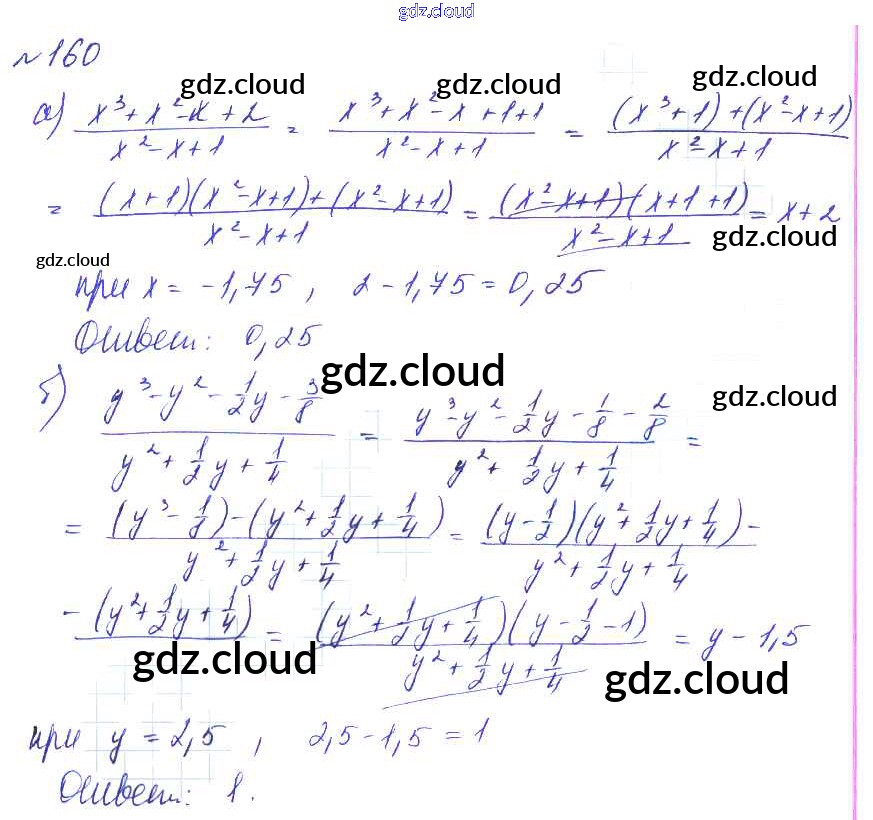 gdz.cloud
№160
gdz.cloud gdz.cloud gdz.cloud
а) (x³+x²-x+2)/(x²-x+1) = (x³+x²-x+1+1)/(x²-x+1) = ((x³+1)+(x²-x+1))/(x²-x+1)
= ((x+1)(x²-x+1)+(x²-x+1))/(x²-x+1) = ((x²-x+1)(x+1+1))/(x²-x+1) = x+2
gdz.cloud gdz.cloud
при x = -1,75 , 2-1,75=0,25
Ответ: 0,25
gdz.cloud gdz.cloud
б) (y³-y²-1/2y-3/8)/(y²+1/2y+1/4) = (y³-y²-1/2y-1/8-2/8)/(y²+1/2y+1/4) =
= ((y³-1/8)-(y²+1/2y+1/4))/(y²+1/2y+1/4) = ((y-1/2)(y²+1/2y+1/4)-/(y²+1/2y+1/4)
-(y²+1/2y+1/4) = ((y²+1/2y+1/4)(y-1/2-1))/(y²+1/2y+1/4) = y-1,5
gdz.cloud gdz.cloud gdz.cloud
при y = 2,5 , 2,5-1,5=1
Ответ: 1.